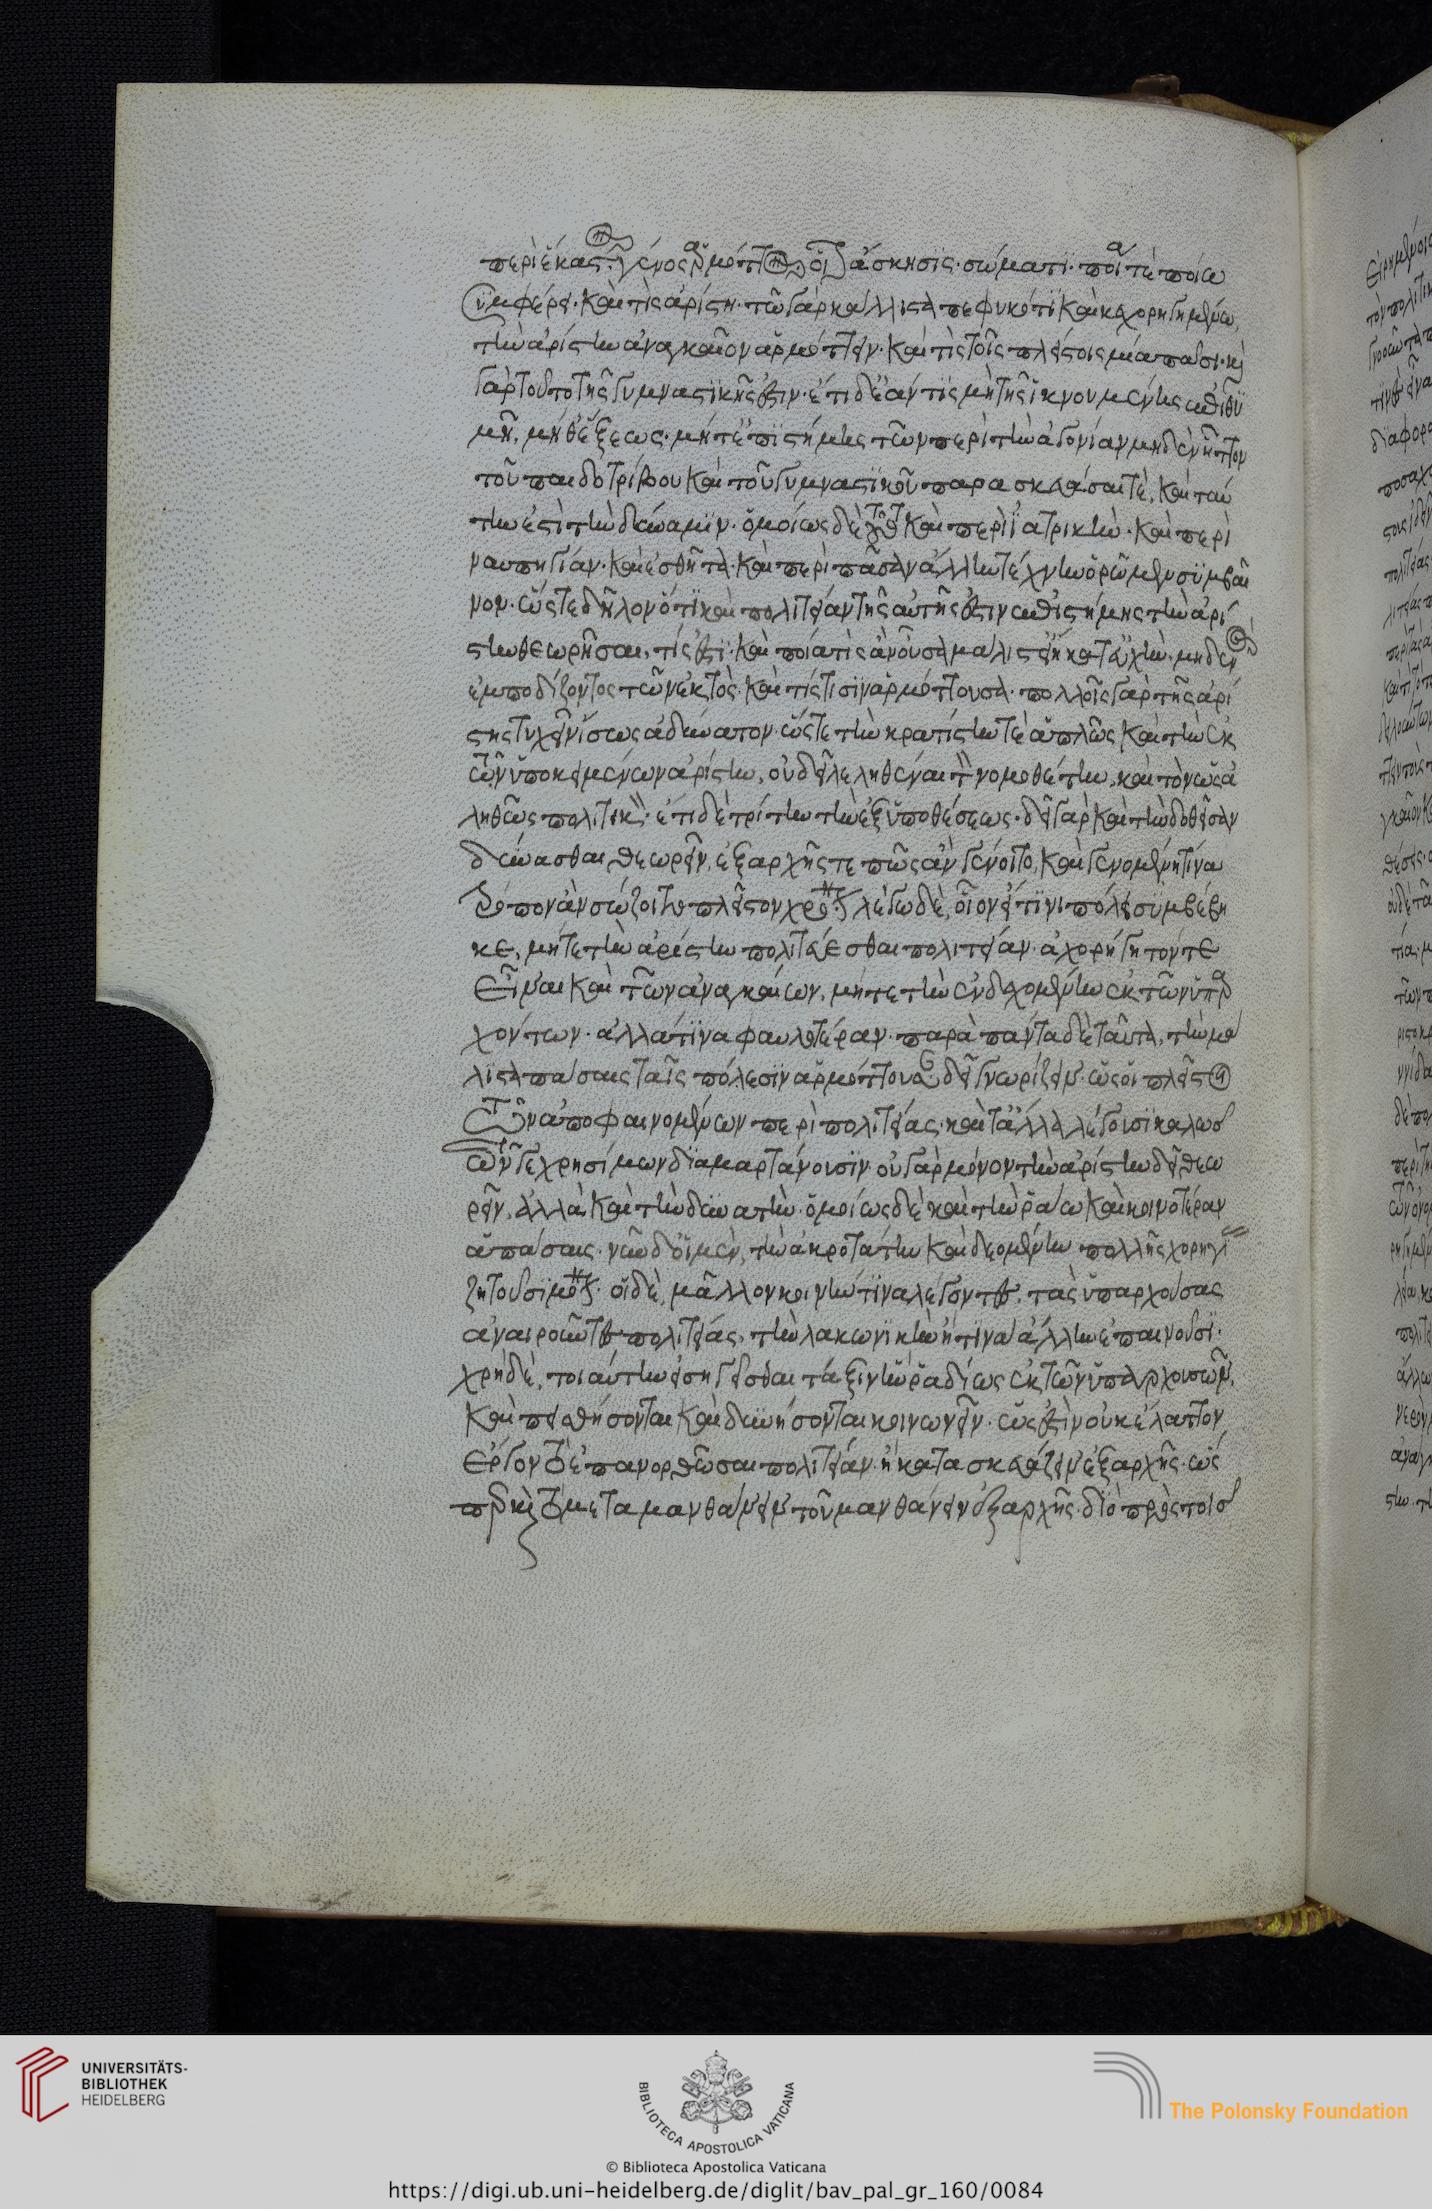 περὶ ἕκαστον γένος ἁρμόττον οἷον ἄσκησις· σώματι· ποία τὲ ποίω
συμφέρει· καὶ τίς ἀρίστη· τῶ γὰρ κάλλιστα πεφυκότι καὶ κεχορηγημένω,
τὴν ἀρίστην ἀναγκαῖον ἁρμόττειν· καὶ τίς τοῖς πλείστοις μία πᾶσι· καὶ
γὰρ τοῦτο τῆς γυμναστικῆς ἐστιν· ἔτι δ' ἐάν τις μὴ τῆς ἱκνουμένης ἐπιθυ
μῆ, μήθ' ἕξεως· μήτ' ἐπιστήμης τῶν περὶ τὴν ἀγωνίαν μηδὲν ἧττον
τοῦ παιδοτρίβου καὶ τοῦ γυμναστικοῦ παρασκευάσαι τὲ, καὶ ταύ
την ἐστὶ τὴν δύναμιν· ὁμοίως δὲ τοῦτο καὶ περὶ ἰατρικὴν· καὶ περὶ
ναυπηγίαν· καὶ ἐσθῆτα· καὶ περὶ πᾶσαν ἄλλην τέχνην ὁρῶμεν συμβαῖ
νον· ὥστε δῆλον ὅτι καὶ πολιτείαν τῆς αὐτῆς ἐστιν ἐπιστήμης τὴν ἀρί
στην θεωρῆσαι, τίς ἐστι· καὶ ποία τὶς ἂν οὖσα μάλιστ' εἴη κατ' εὐχήν· μηδενὸς
ἐμποδίζοντος τῶν ἐκτός· καὶ τίς τισὶν ἁρμόττουσα· πολλοῖς γὰρ τῆς ἀρί
στης τυχεῖν ἴσως ἀδύνατον· ὥστε τὴν κρατίστην τὲ ἁπλῶς καὶ τὴν ἐκ
τῶν ὑποκειμένων ἀρίστην, οὐ δεῖ λεληθέναι τὸν νομοθέτην, καὶ τὸν ὡς ἀ
ληθῶς πολιτικόν· ἔτι δὲ τρίτην τὴν ἐξ ὑποθέσεως· δεῖ γὰρ καὶ τὴν δοθεῖσαν
δύνασθαι θεωρεῖν, ἐξαρχῆς τε πῶς ἂν γένοιτο, καὶ γενομένη τίνα
τρόπον ἂν σώζοιτο πλεῖστον χρόνον· λέγω δὲ, οἷον εἴ τινι πόλει συμβέβη
κε, μήτε τὴν ἀρίστην πολιτεύεσθαι πολιτείαν· ἀχορήγητόν τε
εἶναι καὶ τῶν ἀναγκαίων, μήτε τὴν ἐνδεχομένην ἐκ τῶν ὑπαρ
χόντων· ἀλλά τινα φαυλοτέραν· παρὰ πάντα δὲ ταῦτα, τὴν μά
λιστα πάσαις ταῖς πόλεσιν ἁρμόττουσαν δεῖ γνωρίζειν· ὡς οἱ πλεῖστοι
τῶν ἀποφαινομένων περὶ πολιτείας· καὶ τἄλλα λέγουσι καλῶς
τῶν γε χρησίμων διαμαρτάνουσιν οὐ γὰρ μόνον τὴν ἀρίστην δεῖ θεω
ρεῖν, ἀλλὰ καὶ τὴν δυνατὴν· ὁμοίως δὲ καὶ τὴν ῥάω καὶ κοινοτέραν
ἁπάσαις· νῦν δ' οἱ μὲν, τὴν ἀκροτάτην καὶ δεομένην πολλῆς χορηγίας
ζητοῦσι μόνον· οἱ δὲ, μᾶλλον κοινήν τινα λέγοντες, τὰς ὑπαρχούσας
ἀναιροῦντες πολιτείας, τὴν λακωνικὴν ἤ τινα ἄλλην ἐπαινοῦσι·
χρὴ δὲ, τοιαύτην εἰσηγεῖσθαι τάξιν ἣν ῥαδίως ἐκ τῶν ὑπαρχουσῶν,
καὶ πεισθήσονται καὶ δυνήσονται κοινωνεῖν· ὡς ἔστιν οὐκ ἔλαττον
ἔργον τὸ ἐπανορθῶσαι πολιτείαν· ἢ κατασκευάζειν ἐξαρχῆς· ὥς
περ καὶ τὸ μεταμανθάνειν τοῦ μανθάνειν ἐξαρχῆς· διὸ πρὸς τοῖς
UNIVERSITÄTS-
BIBLIOTHEK
HEIDELBERG
BIBLIOTECA APOSTOLICA VATICANA
The Polonsky Foundation
© Biblioteca Apostolica Vaticana
https://digi.ub.uni-heidelberg.de/diglit/bav_pal_gr_160/0084